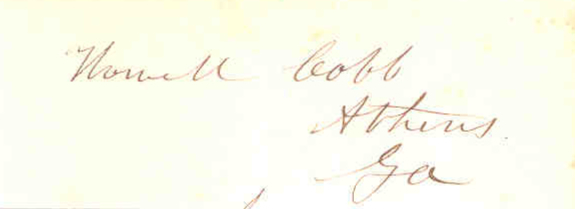 Howell Cobb
Athens
Ga